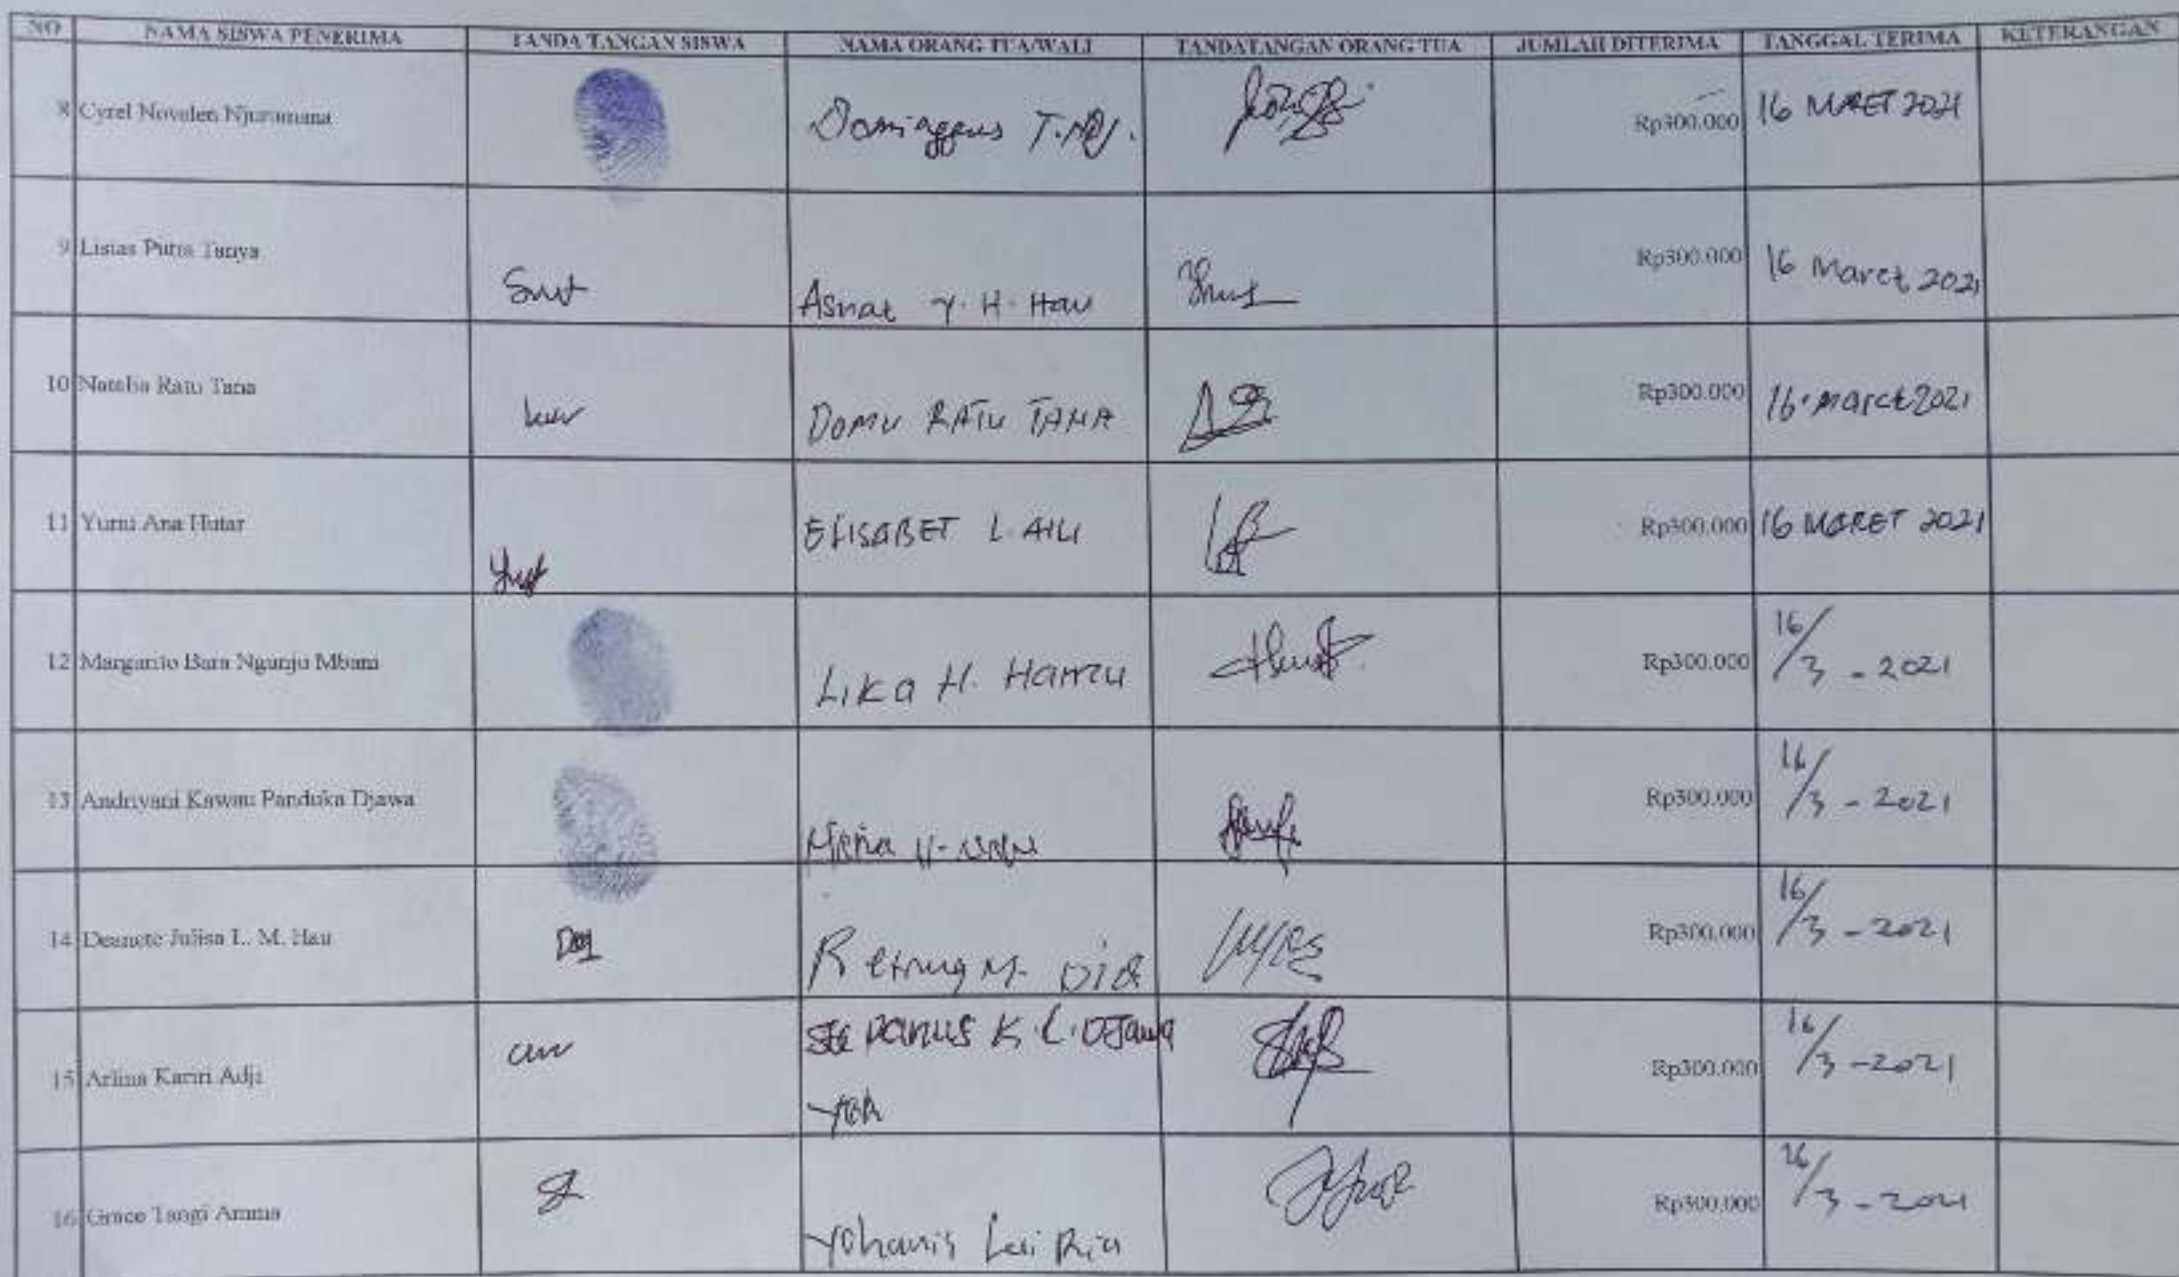 NO NAMA SISWA PENERIMA TANDA TANGAN SISWA NAMA ORANG TUA/WALI TANDATANGAN ORANG TUA JUMLAH DITERIMA TANGGAL TERIMA KETERANGAN
8 Cyrel Novelen Njurumana Dominggus T. Rp300.000 16 MARET 2021
9 Listas Putra Tanya Asnat Y. H. Hau Rp300.000 16 Maret 2021
10 Natalia Ratu Tana DOMU RATU TANA Rp300.000 16. Maret 2021
11 Yurni Ana Hutar ELISABET L. AILI Rp300.000 16 MARET 2021
12 Margarito Bara Ngunju Mbani LIKA H. Rp300.000 16/3 - 2021
13 Andriyani Kawau Panduka Djawa Rp300.000 16/3 - 2021
14 Deanete Julisa L. M. Hau Rp300.000 16/3 - 2021
15 Arlina Karni Adji Stepanus K. L. Djawa Rp300.000 16/3 - 2021
16 Grace Tangi Amma Yohanis Lai Ria Rp300.000 16/3 - 2021